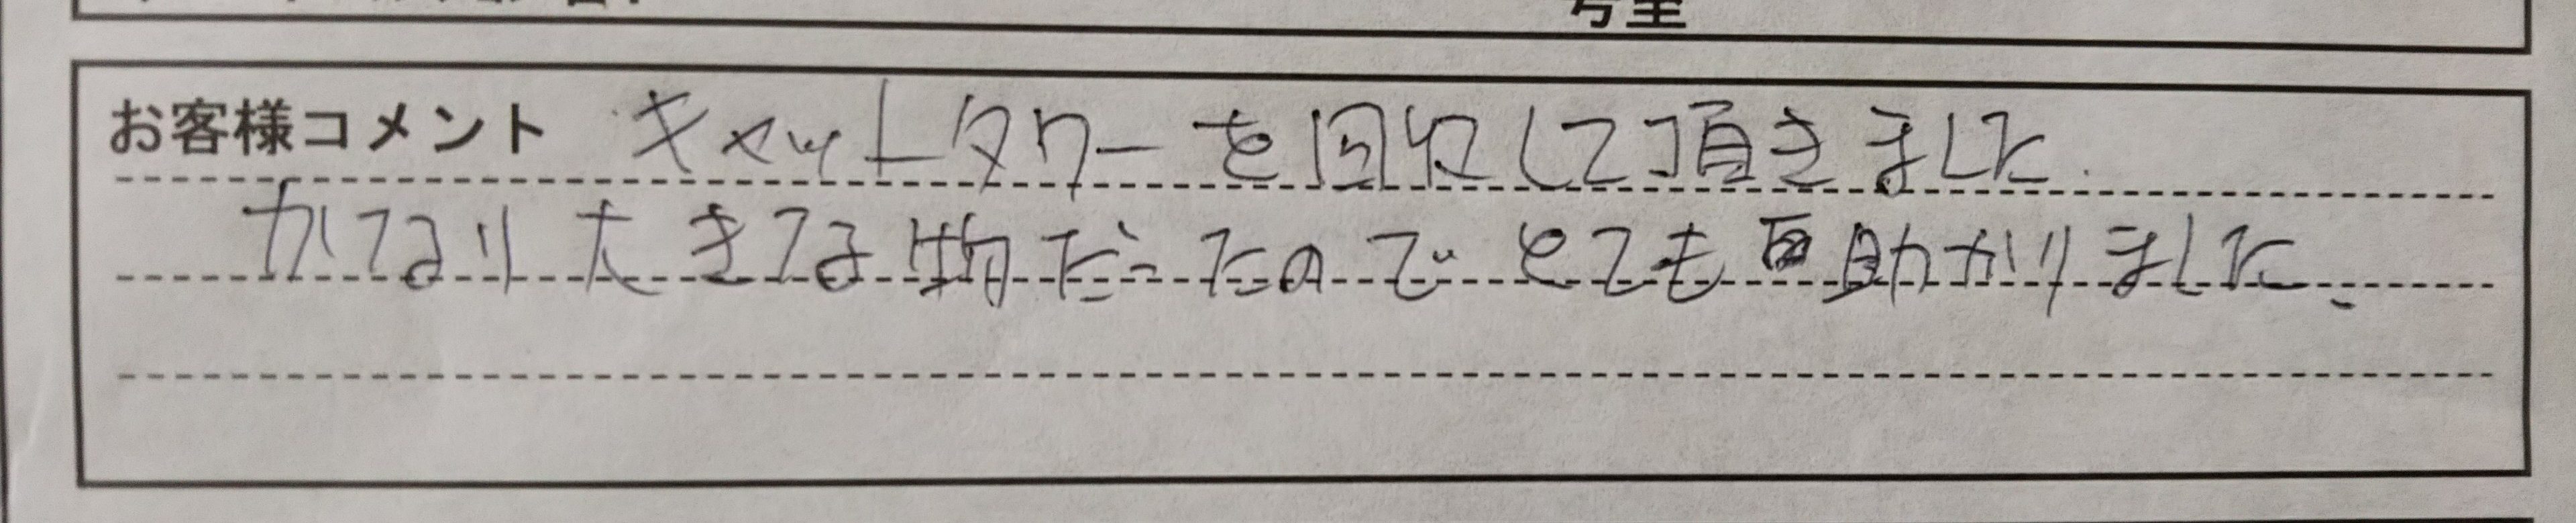 号室
お客様コメント キャットタワーを回収して頂きました.
かなり大きな物だったのでとても助かりました.